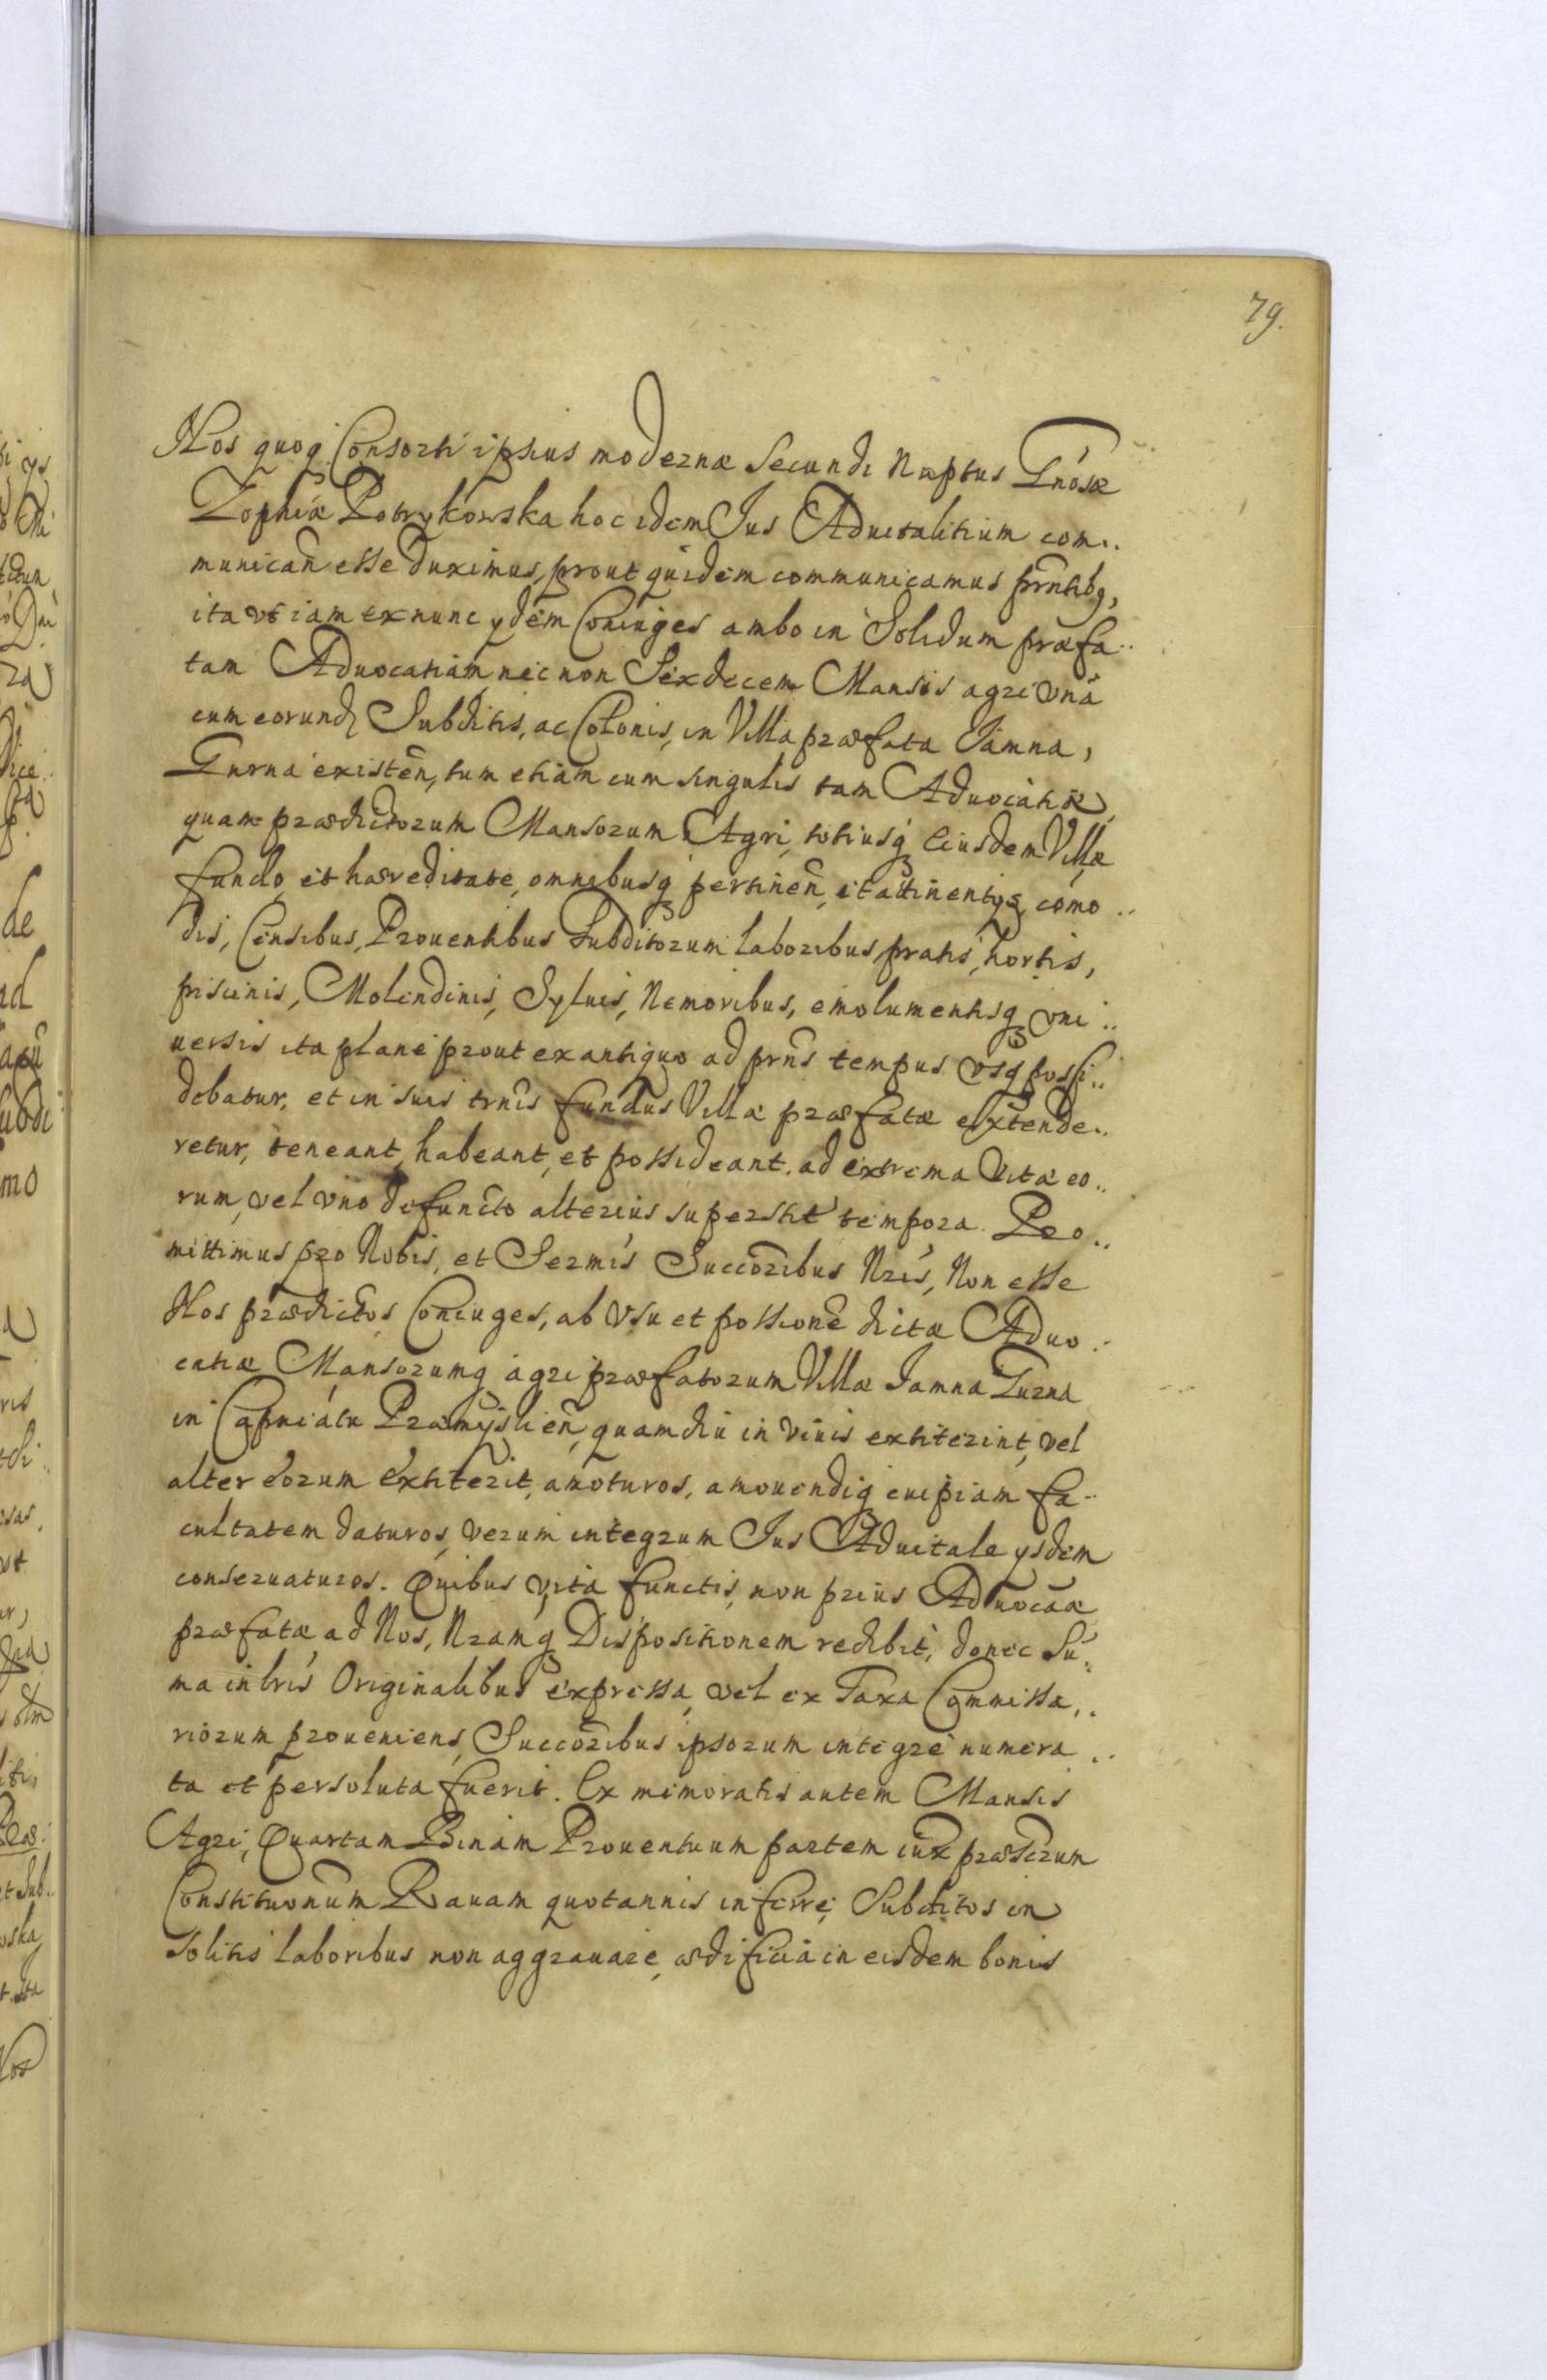 79.
Nos quoq Consorti ipsius modernæ Secundi Nuptus Gnósæ
Zophiæ Potrykowska hoc idem Jus Aduitalitium com..
municań esse duximus, prout quidem communicamus prńtibq,
ita vt iam ex nunc ydem Coniuges ambo in Solidum præfa..
tam Aduocatiam nec non Sexdecem Mansos agri vná
cum eorund Subditis, ac Colonis, in Villa præfata Jamna,
Gurna existeń, tum etiam cum singulis tam Aduocatiæ,
quam prædictorum Mansorum Agri, totiusq Eiusdem Villæ
fundo, et hæreditate, omnibusq pertineń, et attinentys, como..
dis, Censibus, Prouentibus Subditorum laboribus, pratis, hortis,
piscinis, Molendinis, Syluis, Nemoribus, emolumentisq vni..
uersis ita plane prout ex antiquo ad prńs tempus vsq possi..
debatur, et in suis trnis fundus Villæ præfatæ extende..
retur, teneant, habeant, et possideant. ad extrema Vitæ eo..
rum, vel vno defuncto alterius superstit tempora. Pro..
mittimus pro Nobis, et Sermis Succoribus Nris, Non esse
Nos prædictos Coniuges, ab Vsu et possione dictæ Aduo..
catiæ Mansorumq agri præfatorum Villæ Jamna Gurna
in Capneatu Præmyslień, quamdiu in viuis extiterint, vel
alter eorum extiterit, amoturos, amouendiq cuipiam fa..
cultatem daturos, verum integrum Jus Aduitale ysdem
conseruaturos. Quibus vita functis, non prius Aduocaæ
præfatæ ad Nos, Nramq Dispositionem redibit, donec Su..
ma in lris Originalibus expressa, vel ex Taxa Commissa..
riorum proueniens, Succoribus ipsorum integre numera..
ta et persoluta fuerit. Ex memoratis autem Mansis
Agri, Quartam Binam Prouentuum partem iux præscrum
Constituonum Rauam quotannis inferre, Subditos in
solitis laboribus non aggrauare, ædificia in eisdem bonis